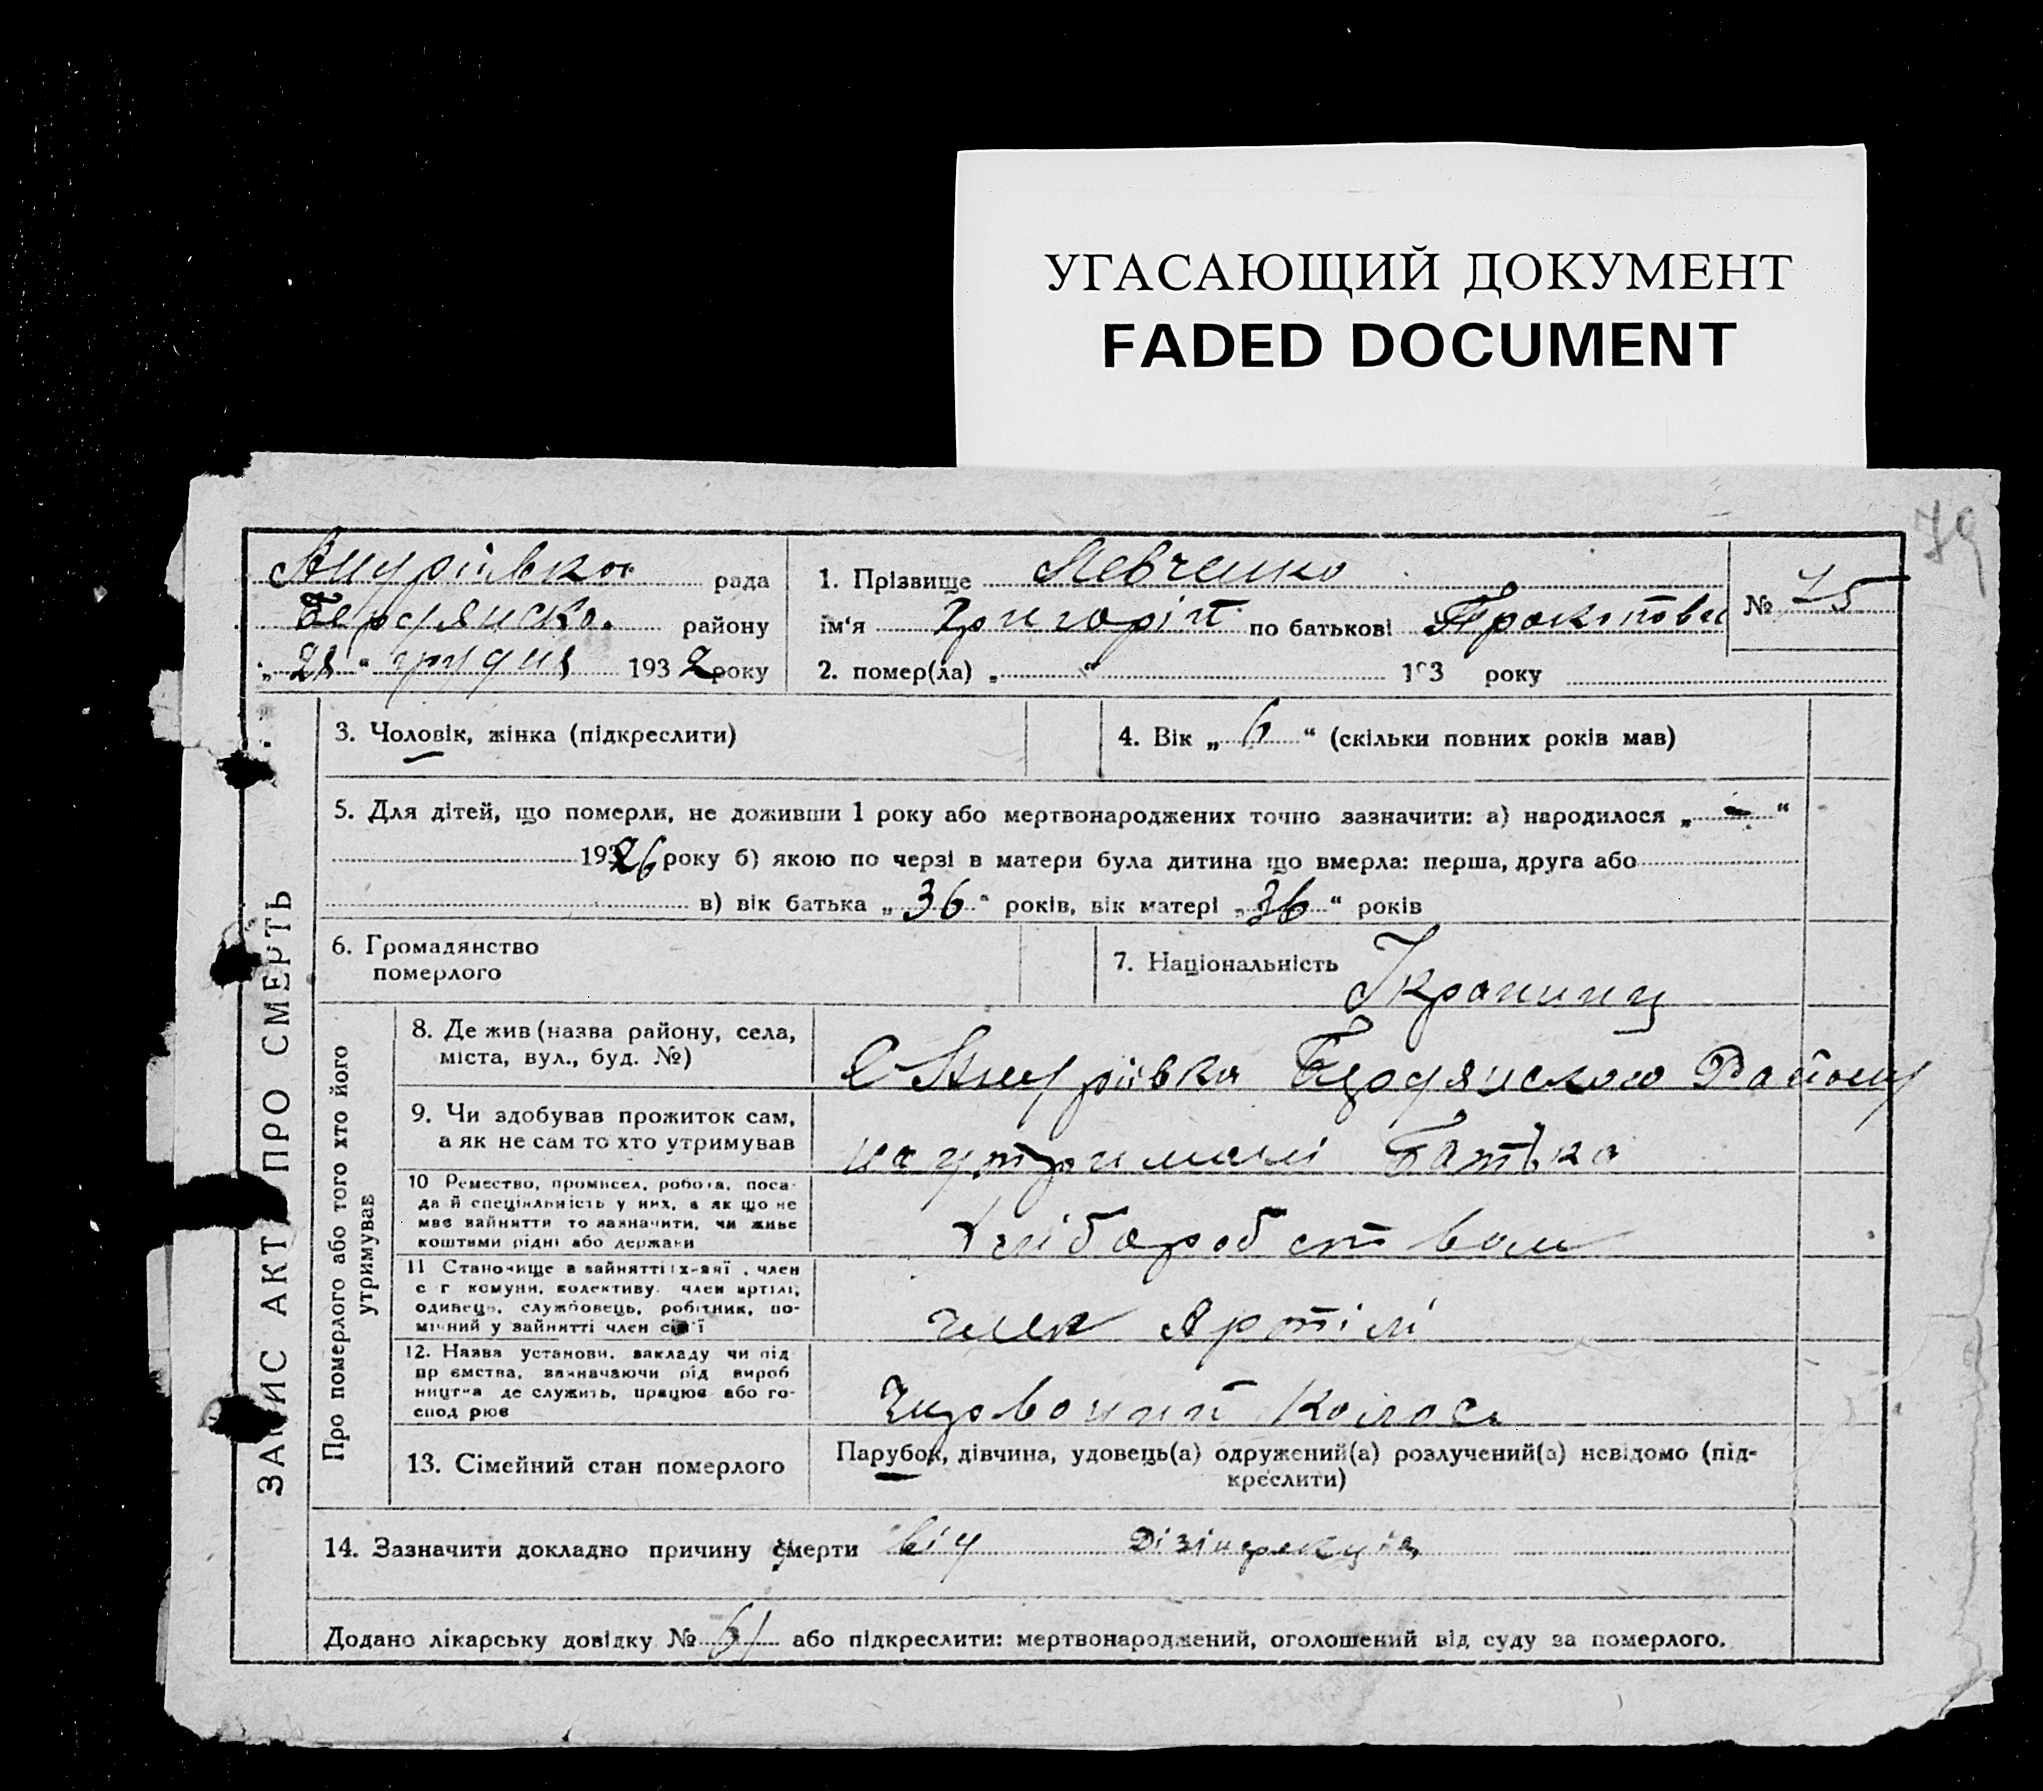 УГАСАЮЩИЙ ДОКУМЕНТ
FADED DOCUMENT
79
рада
Бердянско. району
"21" грудня 1932 року
1. Прізвище Левченко
ім'я Григорій по батькові
№ 75
2. помер(ла) „ “ 193 року
3. Чоловік, жінка (підкреслити)
4. Вік „6“ (скільки повних років мав)
5. Для дітей, що померли, не доживши 1 року або мертвонароджених точно зазначити: а) народилося „-“
1926 року б) якою по черзі в матери була дитина що вмерла: перша, друга або
в) вік батька „36“ років, вік матері „36“ років
6. Громадянство
померлого
7. Національність Україниц
ЗАПИС АКТ ПРО СМЕРТЬ
Про померлого або того хто його
утримував
8. Де жив (назва району, села,
міста, вул., буд. №)
С Бердянского Району
9. Чи здобував прожиток сам,
а як не сам то хто утримував
на утримані Батька
10 Ремество, промисел, робота, поса-
да й спеціяльність у них, а як що не
має зайняття то зазначити, чи живе
коштами рідні або держави
Хліборобством
11 Становище в зайнятті їх-яії, член
с г комуни, колективу, член артілі,
одинець, службовець, робітник, по-
мічний у зайнятті член сім'ї
член Артілі
12. Назва установи, закладу чи під
пр ємства, зазначаючи рід вироб
ництва де служить, працює або го-
спод рює
Червоний Колос
13. Сімейний стан померлого
Парубок, дівчина, удовець(а) одружений(а) розлучений(а) невідомо (під-
креслити)
14. Зазначити докладно причину смерти Дізінфекція
Додано лікарську довідку № 61 або підкреслити: мертвонароджений, оголошений від суду за померлого.